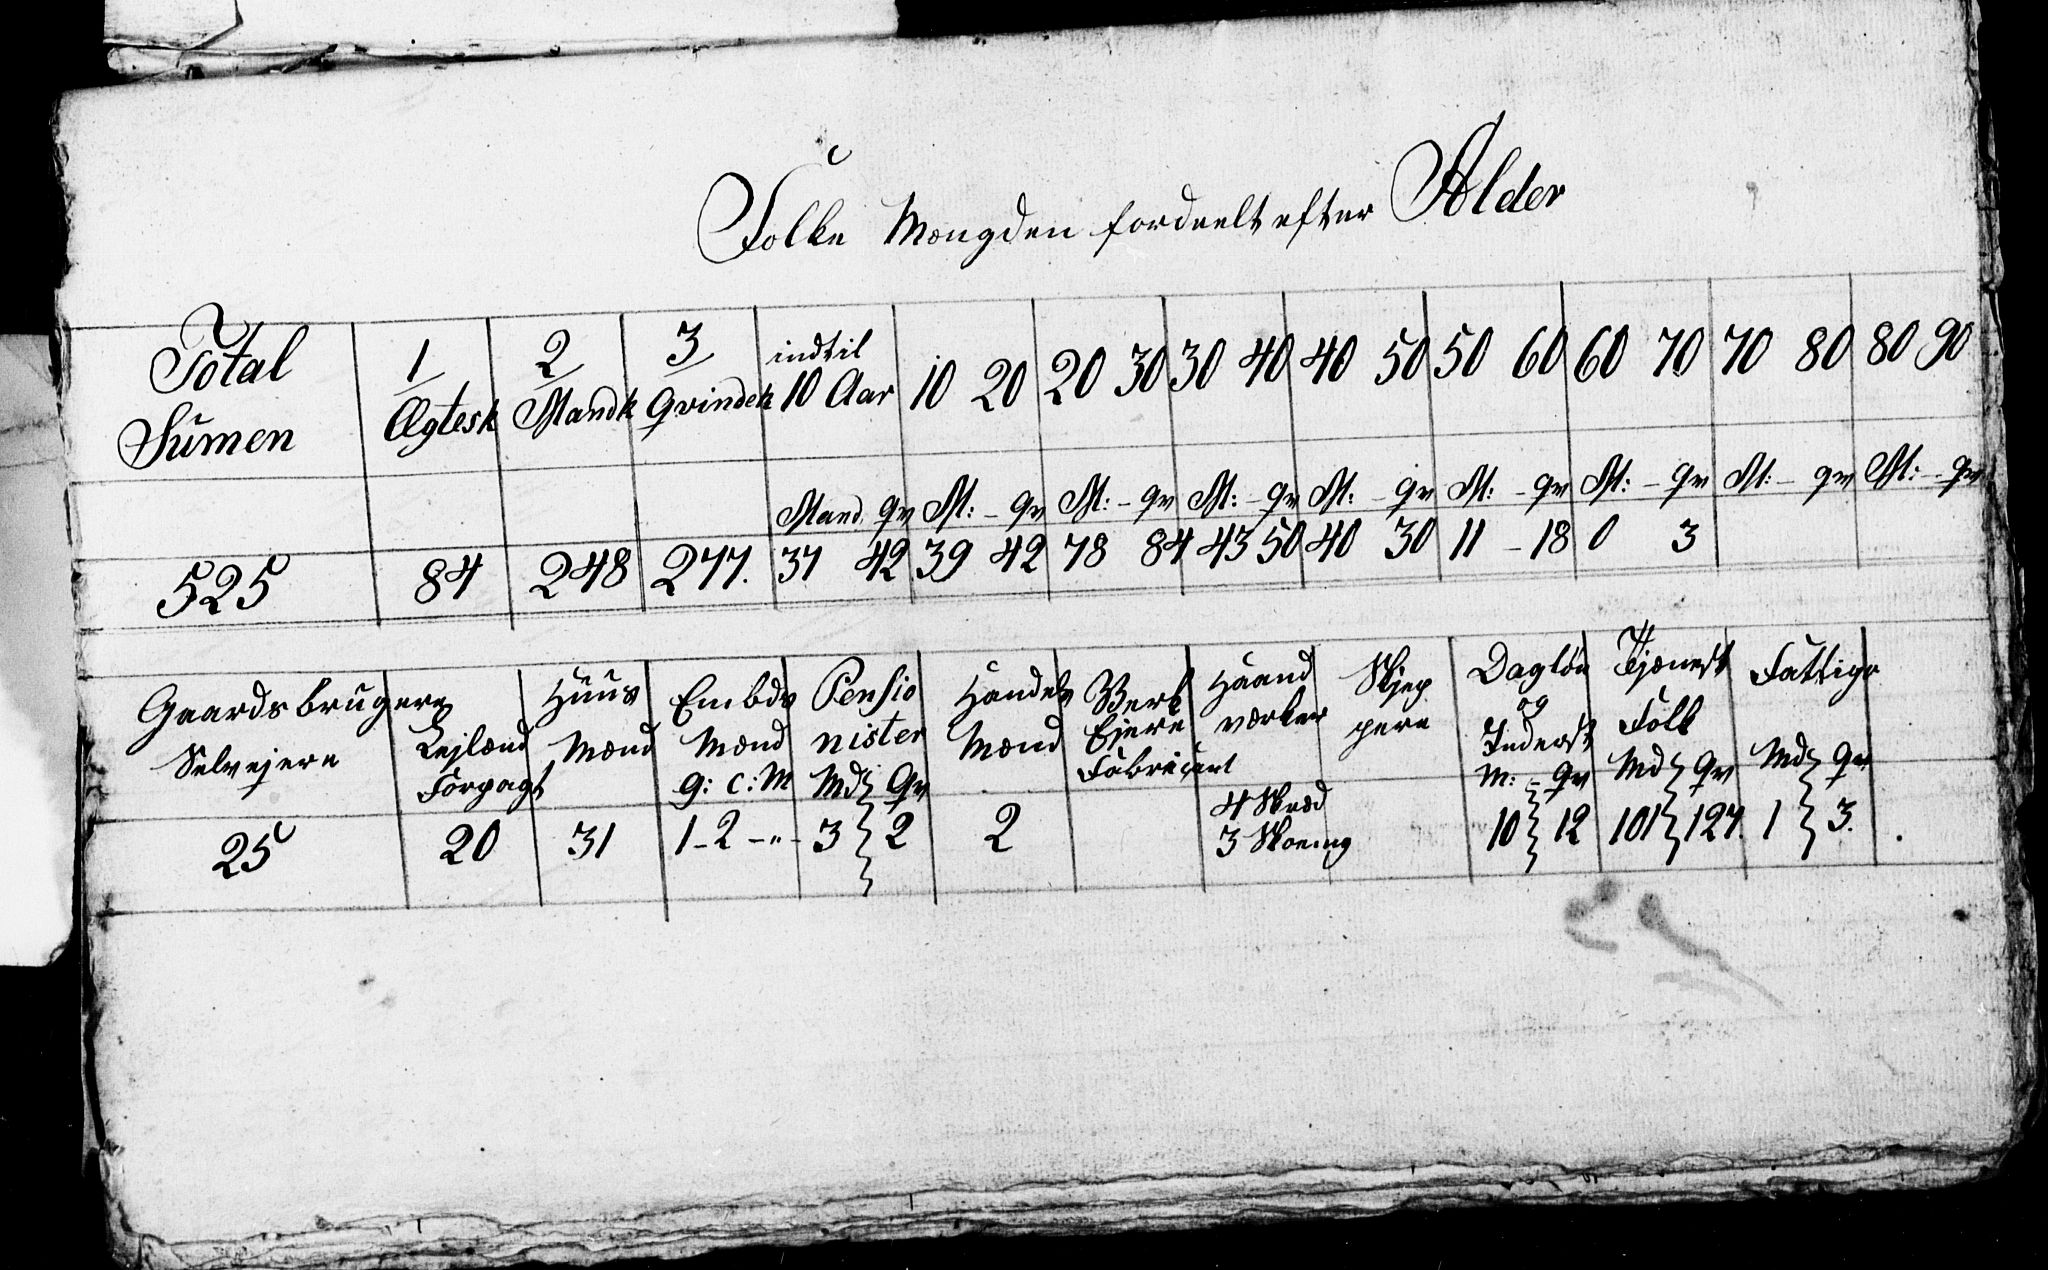 Folke Mængden fordeelt efter Alder
Total Sumen | 1 Ægtesk | 2 Mandk | 3 Qvindek | indtil 10 Aar | 10 20 | 20 30 | 30 40 | 40 50 | 50 60 | 60 70 | 70 80 | 80 90
Mand qv | M: – qv | M: – qv | M: – qv | M: – qv | M: – qv | M: – qv | M: – qv | M: – qv
525 | 84 | 248 | 277. | 37 42 | 39 42 | 78 84 | 43 50 | 40 30 | 11 – 18 | 0 3
Gaardsbrugere Selvejere | Lejlænd Forpagt | Huus Mænd | Embds Mænd g: c: M | Pensio nister Md qv | Handels Mænd | Verk Ejere Fabriqant | Haand værker | Skjep pere | Dagløn og Inderst M: – qv | Tjænest Folk Md qv | Fattige Md qv
25 | 20 | 31 | 1 – 2 – „ – | 3 2 | 2 | 4 Skræd 3 Skoemg | 10 12 | 101 127. | 1 3.